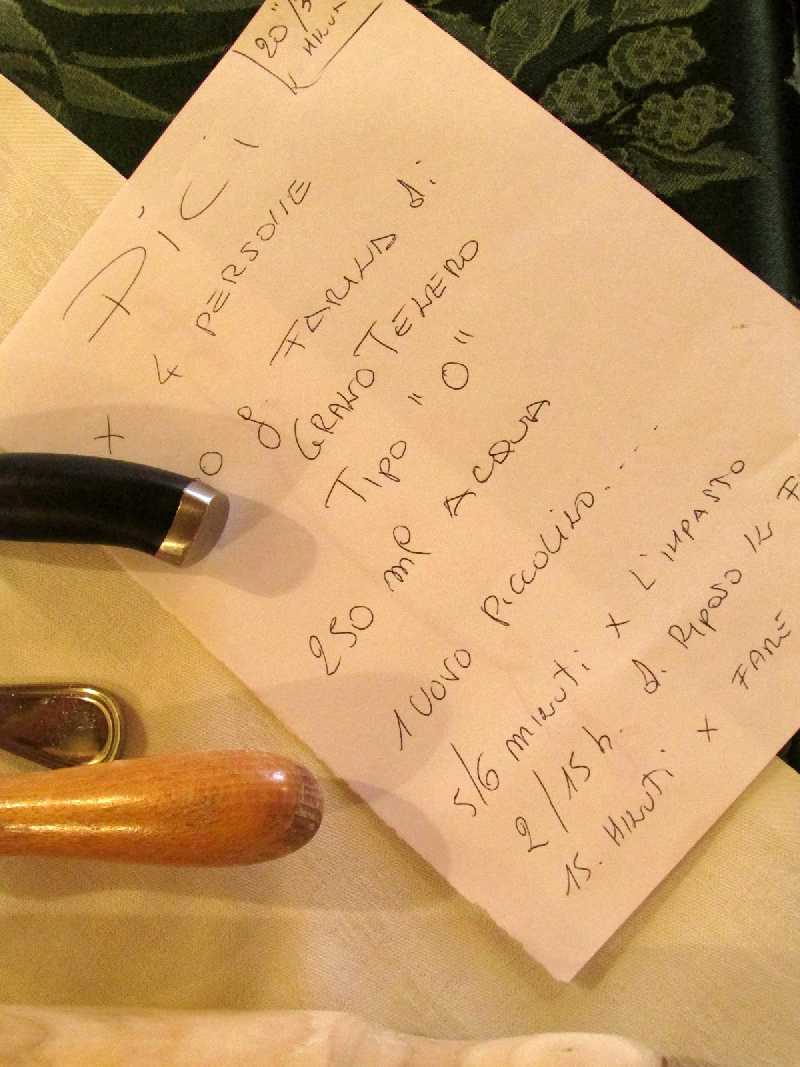 20"/3
MINUT
PiCi
x 4 PERSONE
0 g FARINA di
GRANO TENERO
TIPO "0"
250 ml ACQUA
1 UOVO PICCOLINO.....
5/6 MINUTI x L'IMPASTO
2/15 h. di RIPOSO IN F
15. MINUTI x FARE